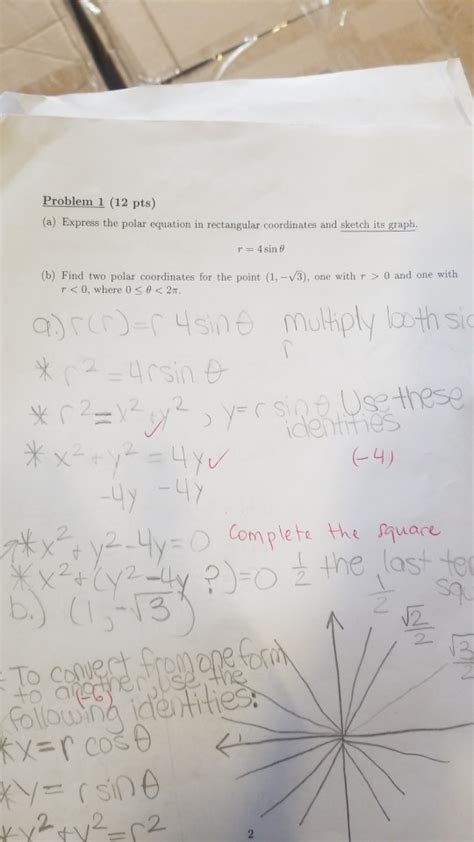 Problem 1 (12 pts)
(a) Express the polar equation in rectangular coordinates and sketch its graph.
r = 4 sin θ
(b) Find two polar coordinates for the point (1, −√3), one with r > 0 and one with
r < 0, where 0 ≤ θ < 2π.
a.) r(r) = r 4 sin θ multiply both
r
* r² = 4r sin θ
* r² = x² + y², y = r sin θ Use these
identities
* x² + y² = 4y
(-4)
-4y -4y
* x² + y² - 4y = 0 Complete the square
* x² + (y² - 4y ?) = 0 1/2 the last
1/2
b.) (1, -√3)
√2/2
√3/2
To convert from one form
to another, use the
(-6)
following identities:
* x = r cos θ
* y = r sin θ
* x² + y² = r²
2